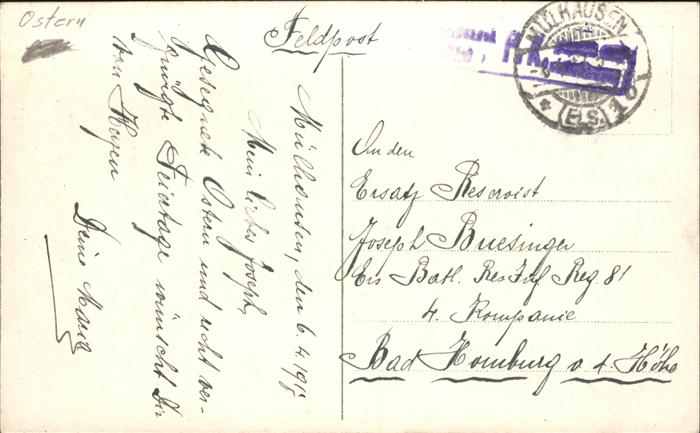 Ostern
Feldpost
MÜLHAUSEN
(ELS.)
* 1 o
Mülhausen, den 6.4.1915
Mein lieber Joseph,
Gesegnete Ostern und recht ver-
gnügte Feiertage wünscht Dir
von Herzen
Deine Maria
An den
Ersatz Reservist
Joseph Buesinger
Ers Batl. Res Inf Reg. 81
4. Kompanie
Bad Homburg v. d. Höhe